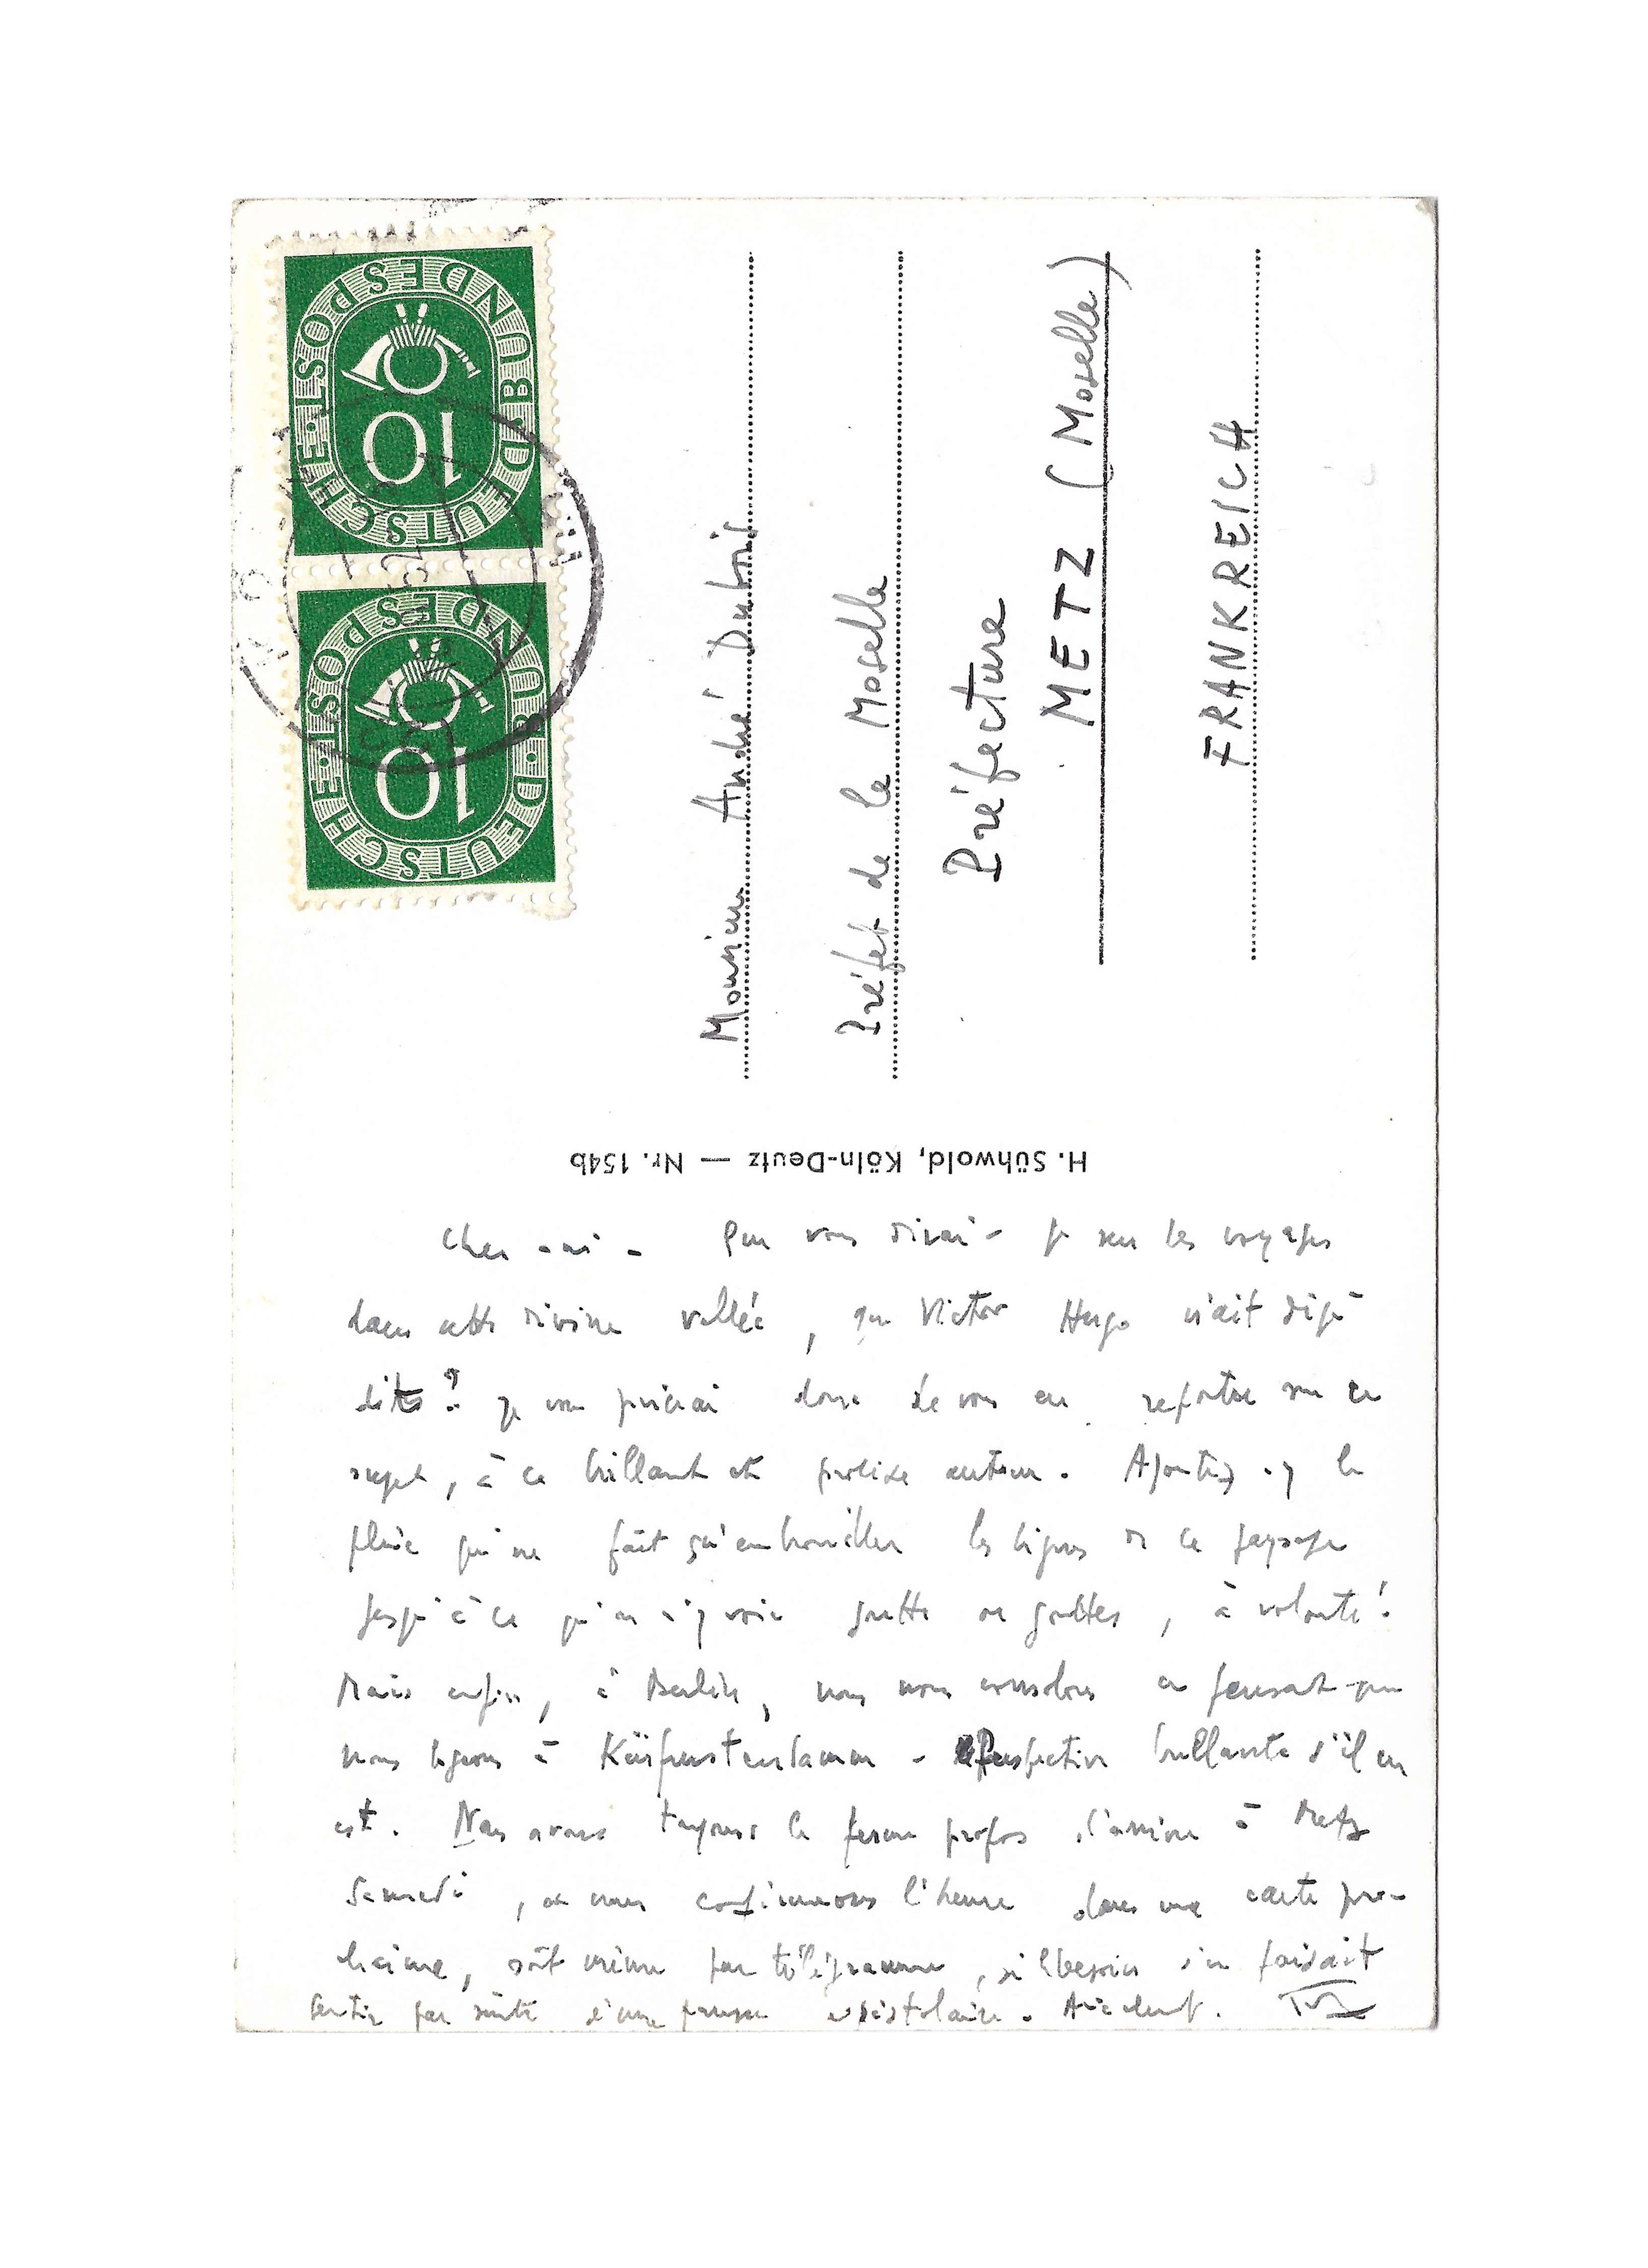 DEUTSCHE BUNDESPOST
10
DEUTSCHE BUNDESPOST
10
52
Monsieur André Dubois
Préfet de la Moselle
Préfecture
METZ (Moselle)
FRANKREICH
H. Sühwold, Köln-Deutz — Nr. 154b
Cher ami - Que vous dirai-je sur les voyages
dans cette divine vallée, que Victor Hugo n'ait déjà
dites? Je vous prierai donc de vous en reporter sur ce
sujet, à ce brillant et prolixe auteur. Ajoutez-y la
pluie qui ne fait qu'embrouiller les lignes de ce paysage
jusqu'à ce qu'on n'y voie goutte ou gouttes, à volonté!
Mais enfin, à Berlin, nous nous consolons en pensant que
nous logeons à Kürfurstendamm - perspective brillante s'il en
est. Nous avons toujours le ferme propos d'arriver à Metz
Samedi, et nous confirmerons l'heure dans une carte pro-
chaine, soit même par télégramme, si besoin s'en faisait
sentir par suite d'une panne épistolaire.